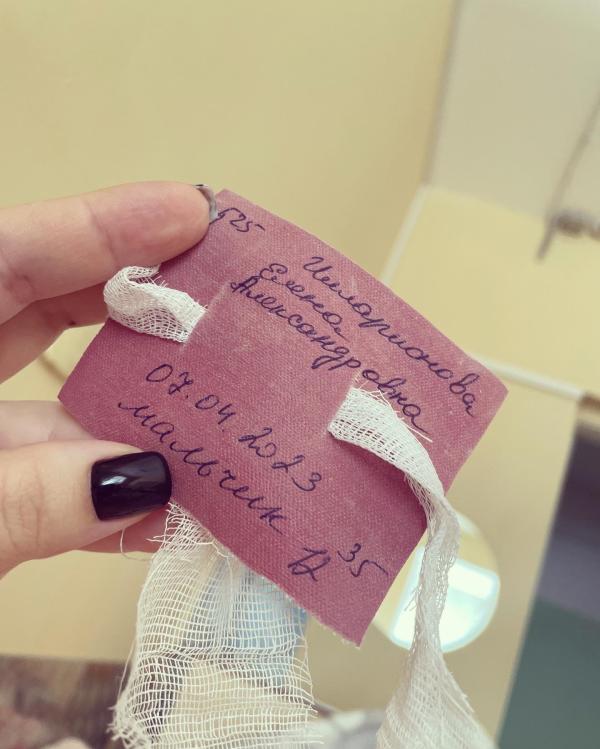 525
Ииларионова
Елена
Александровна
07.04 2023
мальчик 12 35